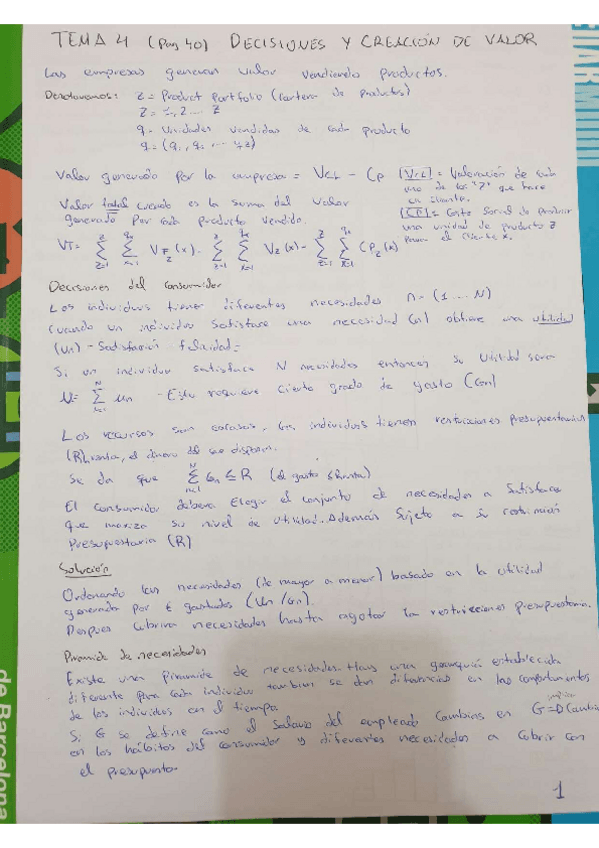 TEMA 4 (Pag 40) DECISIONES Y CREACIÓN DE VALOR
Las empresas generan valor vendiendo productos.
Denotaremos: Z = Product Portfolio (cartera de productos)
Z = 1, 2 ... Z
q = Unidades vendidas de cada producto
q = (q1, q2 ... qz)
Valor generado por la empresa = VCL - CP
[VCL] = Valoración de cada
uno de los "Z" que hace
un cliente.
[CP] = Costo Social de producir
una unidad de producto Z
para el cliente x.
Valor total creado es la suma del valor
generado por cada producto vendido.
Decisiones del consumidor
Los individuos tienen diferentes necesidades n = (1 ... N)
Cuando un individuo satisface una necesidad (n) obtiene una utilidad
(Un) - Satisfacción felicidad =
Si un individuo satisface N necesidades entonces su Utilidad será
U = Σ Un - Esto requiere cierto grado de gasto (Gn)
Los recursos son escasos, los individuos tienen restricciones presupuestarias
(R) renta, el dinero del se dispone.
Se da que Σ Gn ≤ R (el gasto ≤ Renta)
El consumidor deberá elegir el conjunto de necesidades a satisfacer
que maximiza su nivel de utilidad. Además sujeto a su restricción
Presupuestaria (R)
Solución
Ordenando las necesidades (de mayor a menor) basado en la utilidad
generada por € gastados (Un/Gn).
Despues cubrira necesidades hasta agotar la restricciones presupuestaria.
Piramide de necesidades
Existe una piramide de necesidades. Hay una establecida
diferente para cada individuo tambien se dan diferencias en los comportamientos
de los individuos en el tiempo.
Si G se define como el Salario del empleado cambios en G implica
en los hábitos del consumidor y diferentes necesidades a cubrir con
el presupuesto.
1
de Barcelona